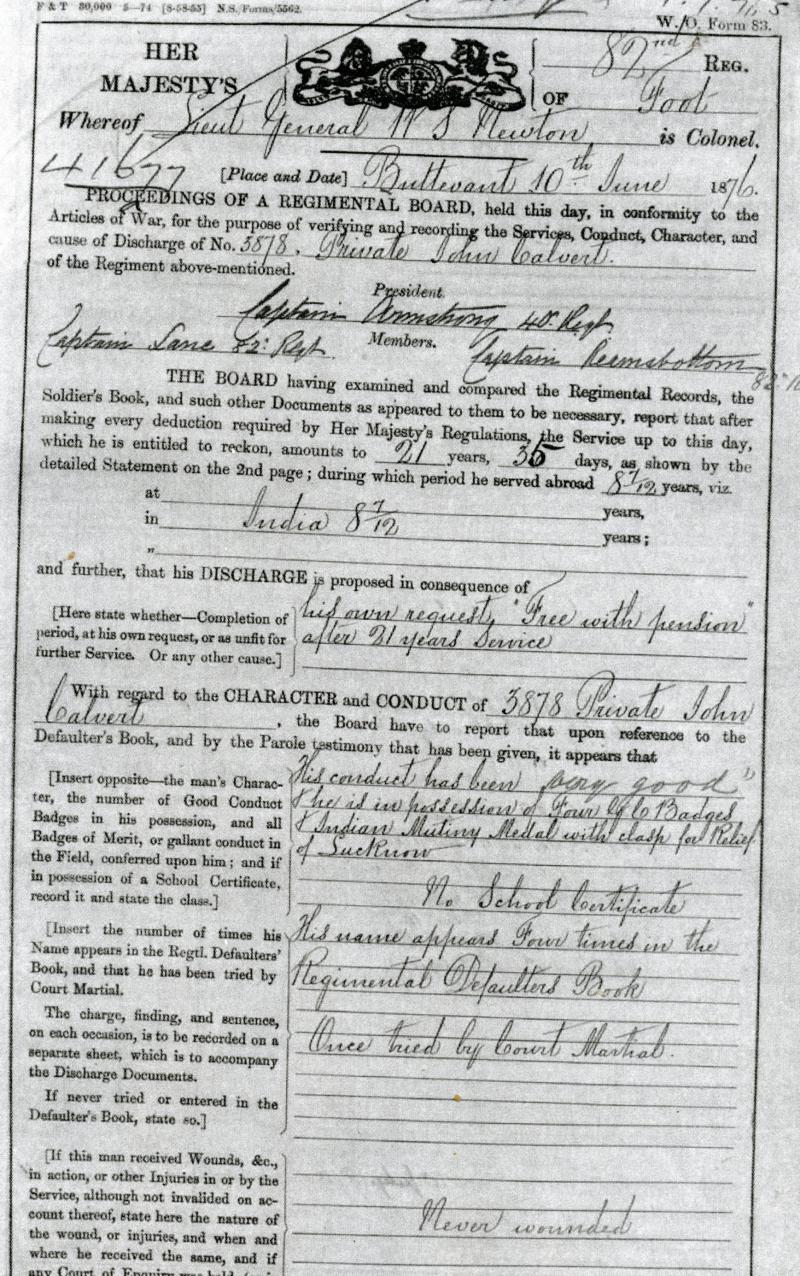 F & T 30,000 5—74 [8-58-55] N.S. Forms/5562.
W. O. Form 83.
HER
MAJESTY'S
82nd REG.
OF Foot
Whereof Lieut General W S Newton is Colonel.
41677 [Place and Date] Buttevant 10th June 1876.
PROCEEDINGS OF A REGIMENTAL BOARD, held this day, in conformity to the
Articles of War, for the purpose of verifying and recording the Services, Conduct, Character, and
cause of Discharge of No. 3878. Private John Calvert.
of the Regiment above-mentioned.
President.
Captain Armstrong 40. Regt
Captain Lane 82d Regt. Members. Captain Reemsbottom
82d
THE BOARD having examined and compared the Regimental Records, the
Soldier's Book, and such other Documents as appeared to them to be necessary, report that after
making every deduction required by Her Majesty's Regulations, the Service up to this day,
which he is entitled to reckon, amounts to 21 years, 35 days, as shown by the
detailed Statement on the 2nd page; during which period he served abroad 8 7/12 years, viz.
at years,
in India 8 7/12 years;
„
and further, that his DISCHARGE is proposed in consequence of
[Here state whether—Completion of
period, at his own request, or as unfit for
further Service. Or any other cause.]
his own request, "Free with pension"
after 21 years Service
With regard to the CHARACTER and CONDUCT of 3878 Private John
Calvert, the Board have to report that upon reference to the
Defaulter's Book, and by the Parole testimony that has been given, it appears that
[Insert opposite—the man's Charac-
ter, the number of Good Conduct
Badges in his possession, and all
Badges of Merit, or gallant conduct in
the Field, conferred upon him; and if
in possession of a School Certificate,
record it and state the class.]
His conduct has been very good"
& he is in possession of Four G C Badges
& Indian Mutiny Medal with clasp for Relief
of Lucknow
No School Certificate
[Insert the number of times his
Name appears in the Regtl. Defaulters'
Book, and that he has been tried by
Court Martial.
The charge, finding, and sentence,
on each occasion, is to be recorded on a
separate sheet, which is to accompany
the Discharge Documents.
If never tried or entered in the
Defaulter's Book, state so.]
His name appears Four times in the
Regimental Defaulters Book
Once tried by Court Martial.
[If this man received Wounds, &c.,
in action, or other Injuries in or by the
Service, although not invalided on ac-
count thereof, state here the nature of
the wound, or injuries, and when and
where he received the same, and if
any Court of Enquiry was held
Never wounded